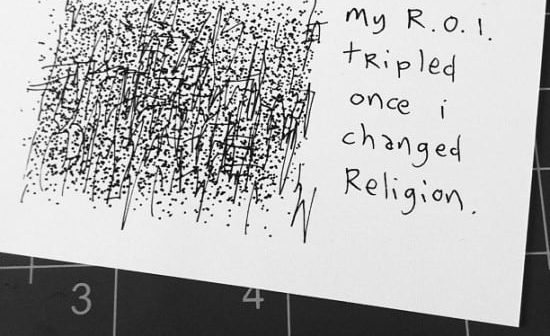 my R.O.I.
tRipled
once i
changed
Religion.
3
4